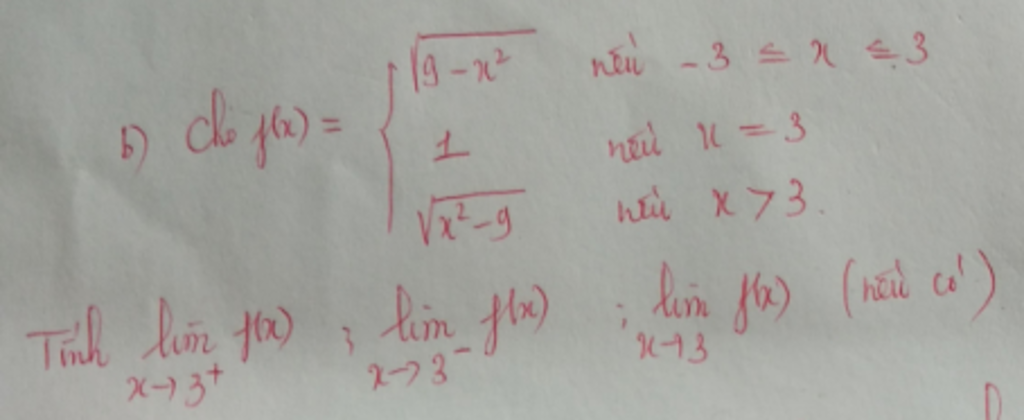 b) Cho f(x) = { √(9 - x²) nếu -3 ≤ x ≤ 3
1 nếu x = 3
√(x² - 9) nếu x > 3.
Tính lim x→3⁺ f(x) ; lim x→3⁻ f(x) ; lim x→3 f(x) (nếu có)